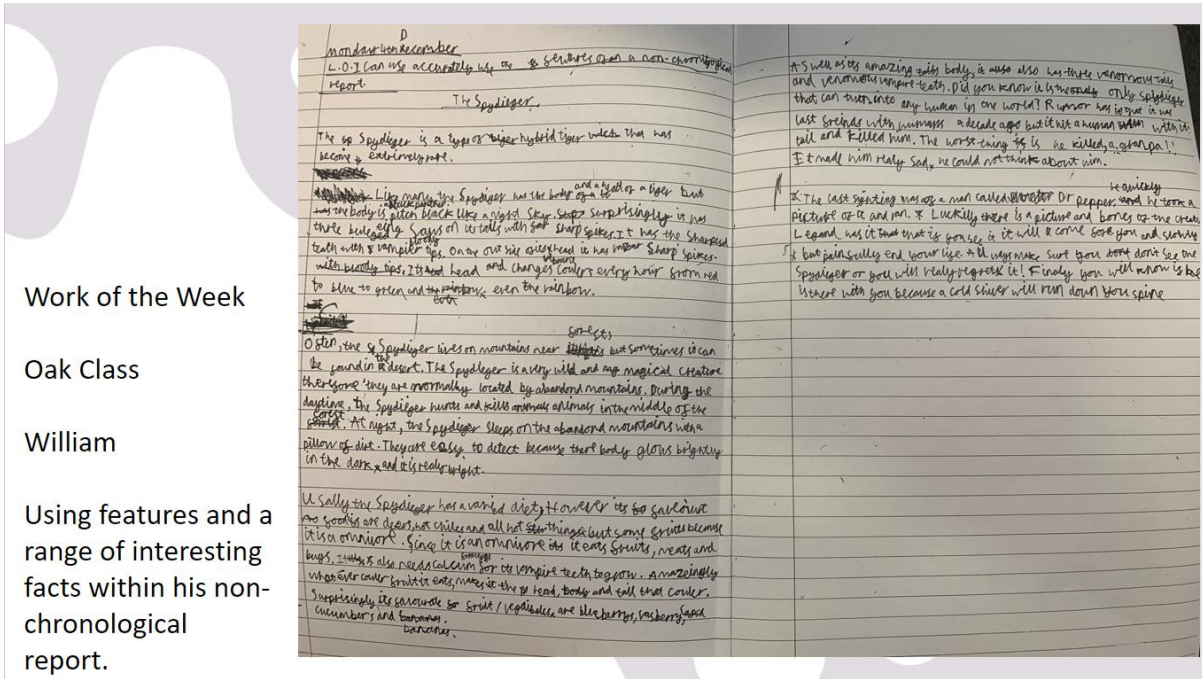 Work of the Week
Oak Class
William
Using features and a
range of interesting
facts within his non-
chronological
report.
D
monday 4th December
L.O.I can use accurately use the features of an a non-chronological
report
The Spydieger.
The Spydieger is a type of tiger hybrid tiger that has
become extreimely rare.
Like many, the Spydieger has the body of a and a head of a tiger but
has the body is pitch black like a night sky. Surprisingly it has
three bulged on its tails with sharp spikes. It has the sharpesd
teath with vampier tips. On the out side of its head it has Sharp spikes.
with bloody tips. It's head and changes coulers every hour from red
to blue to green and the rainbow even the rinbow.
forests,
Often, the Spydieger lives on mountains near but sometimes it can
be found in the desert. The Spydieger is a very wild and magical creature
therefore they are normalky located by abandond mountains. During the
daytime, the Spydieger hunts and kills animals animals in the middle of the
forest. At night, the Spydieger sleeps on the abandond mountains with a
pillow of dirt. They are easy to detect because there body glous brightly
in the dark, and it is realy bright.
Usally the Spydieger has a varied diet, However its favouiut
foodis are deers, hot chiles and all hot things but some fruits because
it is a omnivore. Since it is an omnivore its it eats fruits, meats and
bugs. It also needs calcium for its vampire teeth to grow. Amazeingly
what ever couler fruit it eats, makes it the head, body and tail that couler.
Surprisingly its favourate fruit / vegatibules, are blueberrys, rasberry,
cucumbers and bananas.
bananas.
As well as its amazing body, it also also has three venormous tails
and venormous vampire teath. Did you know it is the only only spydieger
that can turn into any human in the world? Rumor has it that it was
last freinds with humans a decade ago but it hit a human with it
tail and killed him. The worse thing is he killed, a grampa!!
It made him realy sad, he could not think about him.
he quickly
The last sighting was of a man called Dr pepper, and he took a
picture of it and ran. Luckily there is a picture and bones of the creat
Legand has it that that is you see it it will come fore you and slowly
but painfully end your life. All ways make surt you dont don't see the
Spydieger or you will realy regret it! Finaly you will know is he
is there with you because a cold shiver will run down you spine